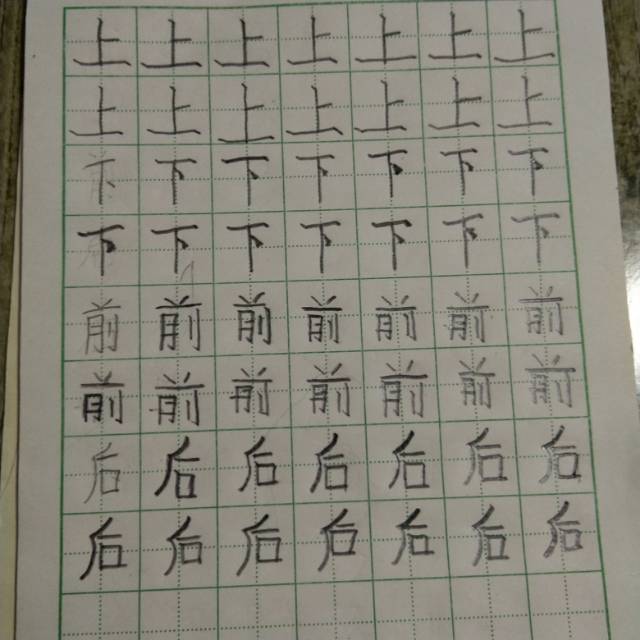 上上上上上上上
上上上上上上上
下下下下下下下
下下下下下下下
前前前前前前前
前前前前前前前
后后后后后后后
后后后后后后后